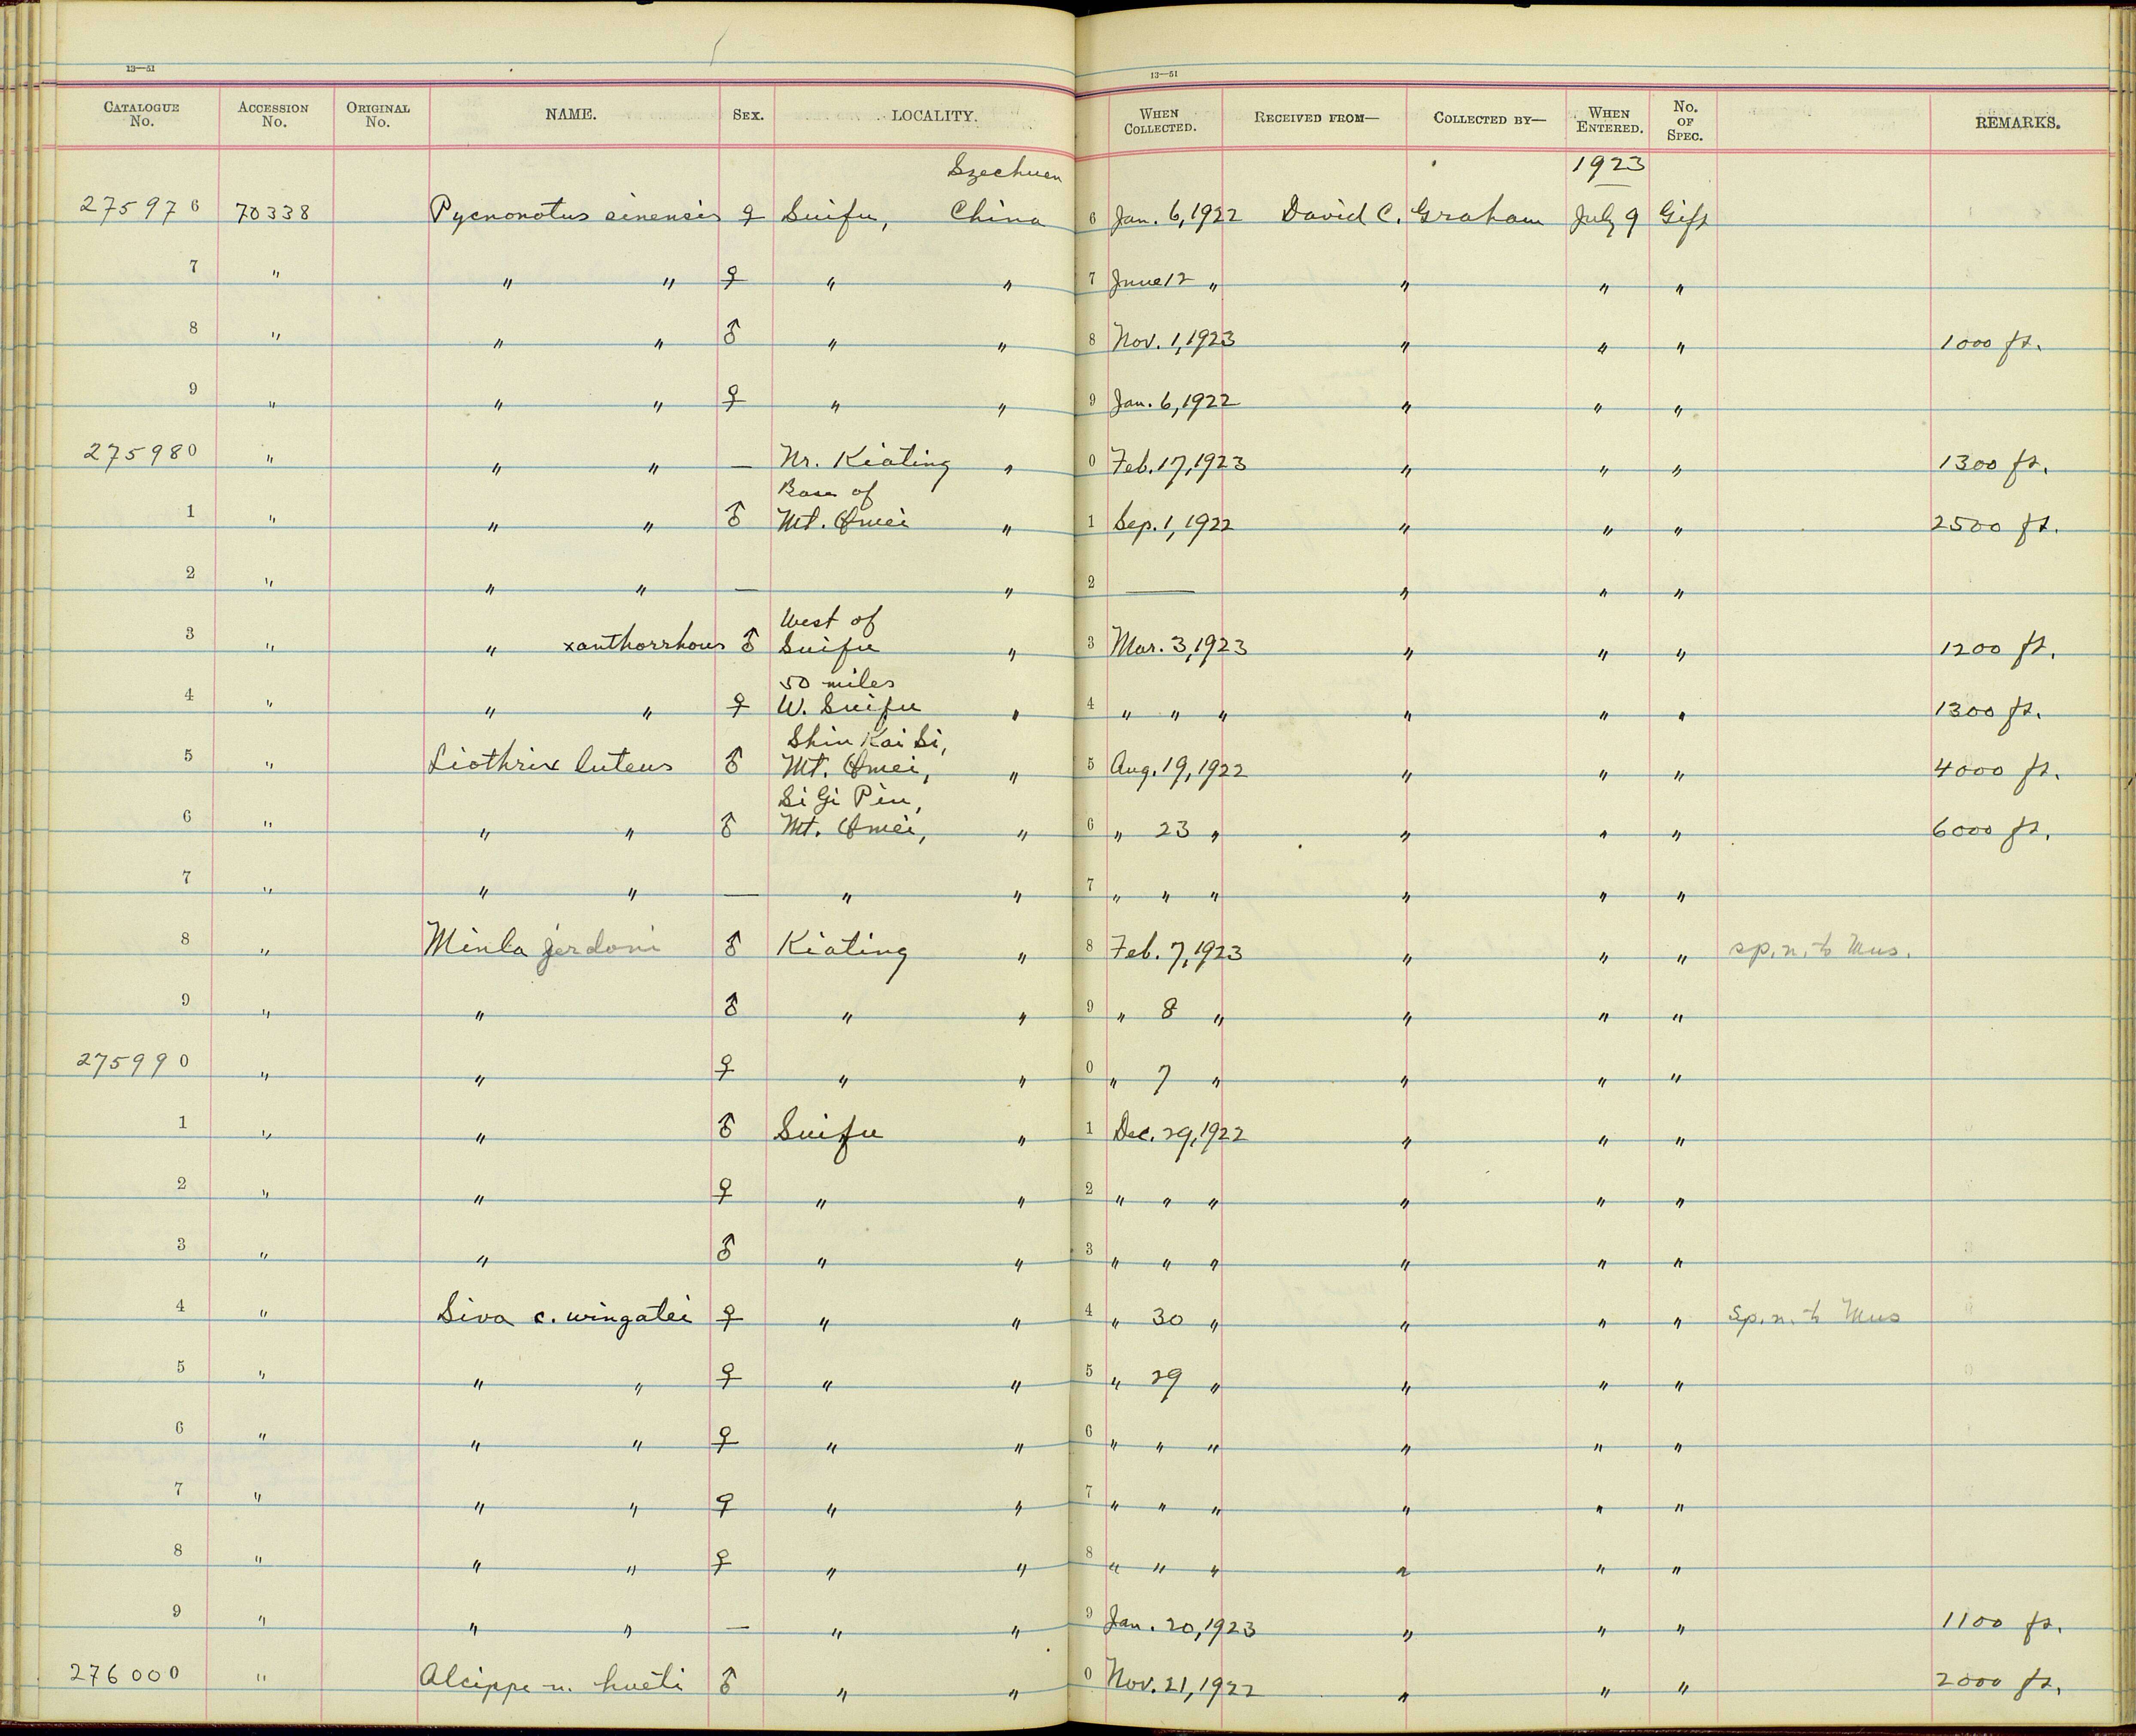 13—51
13—51
CATALOGUE No. ACCESSION No. ORIGINAL No. NAME. SEX. LOCALITY. WHEN COLLECTED. RECEIVED FROM— COLLECTED BY— WHEN ENTERED. No. OF SPEC. REMARKS.
Szechuen 1923
275976 70338 Pycnonotus sinensis ♀ Suifu, China 6 Jan. 6, 1922 David C. Graham July 9 Gift
7 " " " ♀ " " 7 June 12 " " " "
8 " " " ♂ " " 8 Nov. 1, 1923 " " " 1000 ft.
9 " " " ♀ " " 9 Jan. 6, 1922 " " "
275980 " " " — Nr. Kiating " 0 Feb. 17, 1923 " " " 1300 ft.
Base of
1 " " " ♂ Mt. Omei " 1 Sep. 1, 1922 " " " 2500 ft.
2 " " " — " 2 — " " "
West of
3 " " xanthorrhous ♂ Suifu " 3 Mar. 3, 1923 " " " 1200 ft.
50 miles
4 " " " ♀ W. Suifu " 4 " " " " " " 1300 ft.
Shin Kai Si,
5 " Liothrix luteus ♂ Mt. Omei, " 5 Aug. 19, 1922 " " " 4000 ft.
Si Gi Pin,
6 " " " ♂ Mt. Omei, " 6 " 23 " " " " 6000 ft.
7 " " " — " " 7 " " " " " "
8 " Minla jerdoni ♂ Kiating " 8 Feb. 7, 1923 " " " sp. n. to Mus.
9 " " ♂ " " 9 " 8 " " " "
275990 " " ♀ " " 0 " 7 " " " "
1 " " ♂ Suifu " 1 Dec. 29, 1922 " " "
2 " " ♀ " " 2 " " " " " "
3 " " ♂ " " 3 " " " " " "
4 " Siva c. wingatei ♀ " " 4 " 30 " " " " Sp. n. to Mus
5 " " " ♀ " " 5 " 29 " " " "
6 " " " ♀ " " 6 " " " " " "
7 " " " ♀ " " 7 " " " " " "
8 " " " ♀ " " 8 " " " " " "
9 " " " — " " 9 Jan. 20, 1923 " " " 1100 ft.
276000 " Alcippe n. hueti ♂ " " 0 Nov. 21, 1922 " " " 2000 ft.